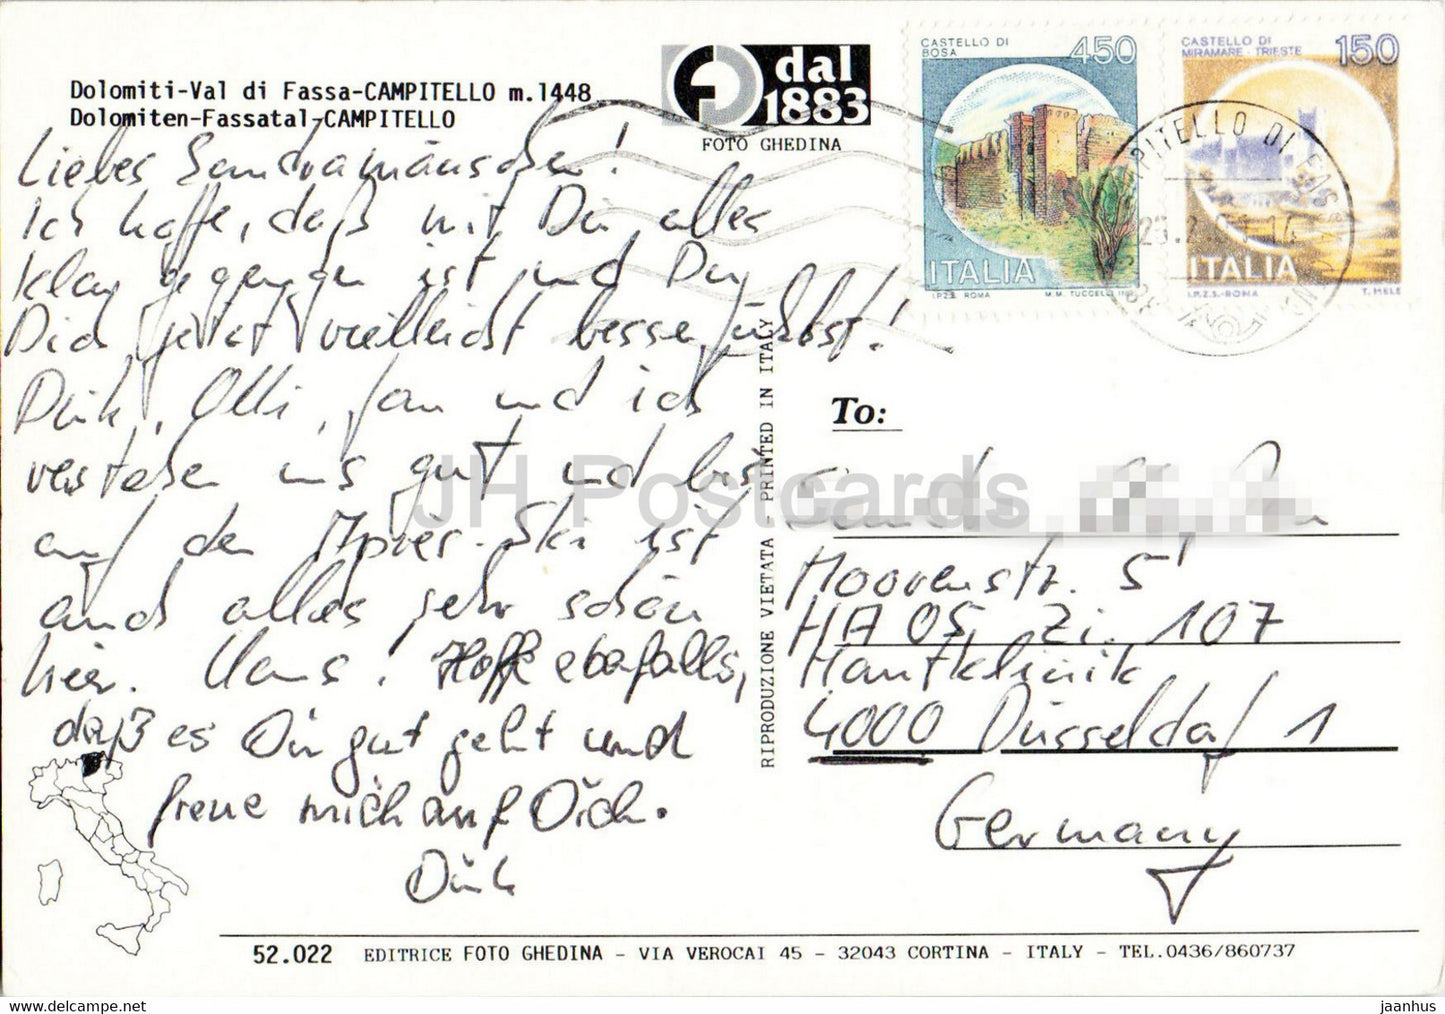 Dolomiti-Val di Fassa-CAMPITELLO m.1448
Dolomiten-Fassatal-CAMPITELLO
F dal 1883
FOTO GHEDINA
CASTELLO DI BOSA 450
ITALIA
I.P.Z.S. ROMA M.M. TUCCELLI INC.
CASTELLO DI MIRAMARE - TRIESTE 150
ITALIA
I.P.Z.S.-ROMA T. MELE
Liebes Sandramäuschen!
Ich hoffe, daß mit Dir alles
klar gegangen ist und Du
Dich jetzt vielleicht besser fühlst!
Dirk, Olli, Jan und ich
verstehen uns gut und bis
auf den Après-Ski ist
auch alles sehr schön
hier. Hans! Hoffe ebenfalls,
daß es Dir gut geht und
freue mich auf Dich.
Dirk
RIPRODUZIONE VIETATA - PRINTED IN ITALY
To:
Moorenstr. 5
HA 05, Zi. 107
Hautklinik
4000 Düsseldorf 1
Germany
52.022 EDITRICE FOTO GHEDINA - VIA VEROCAI 45 - 32043 CORTINA - ITALY - TEL.0436/860737
JH Postcards
jaanhus